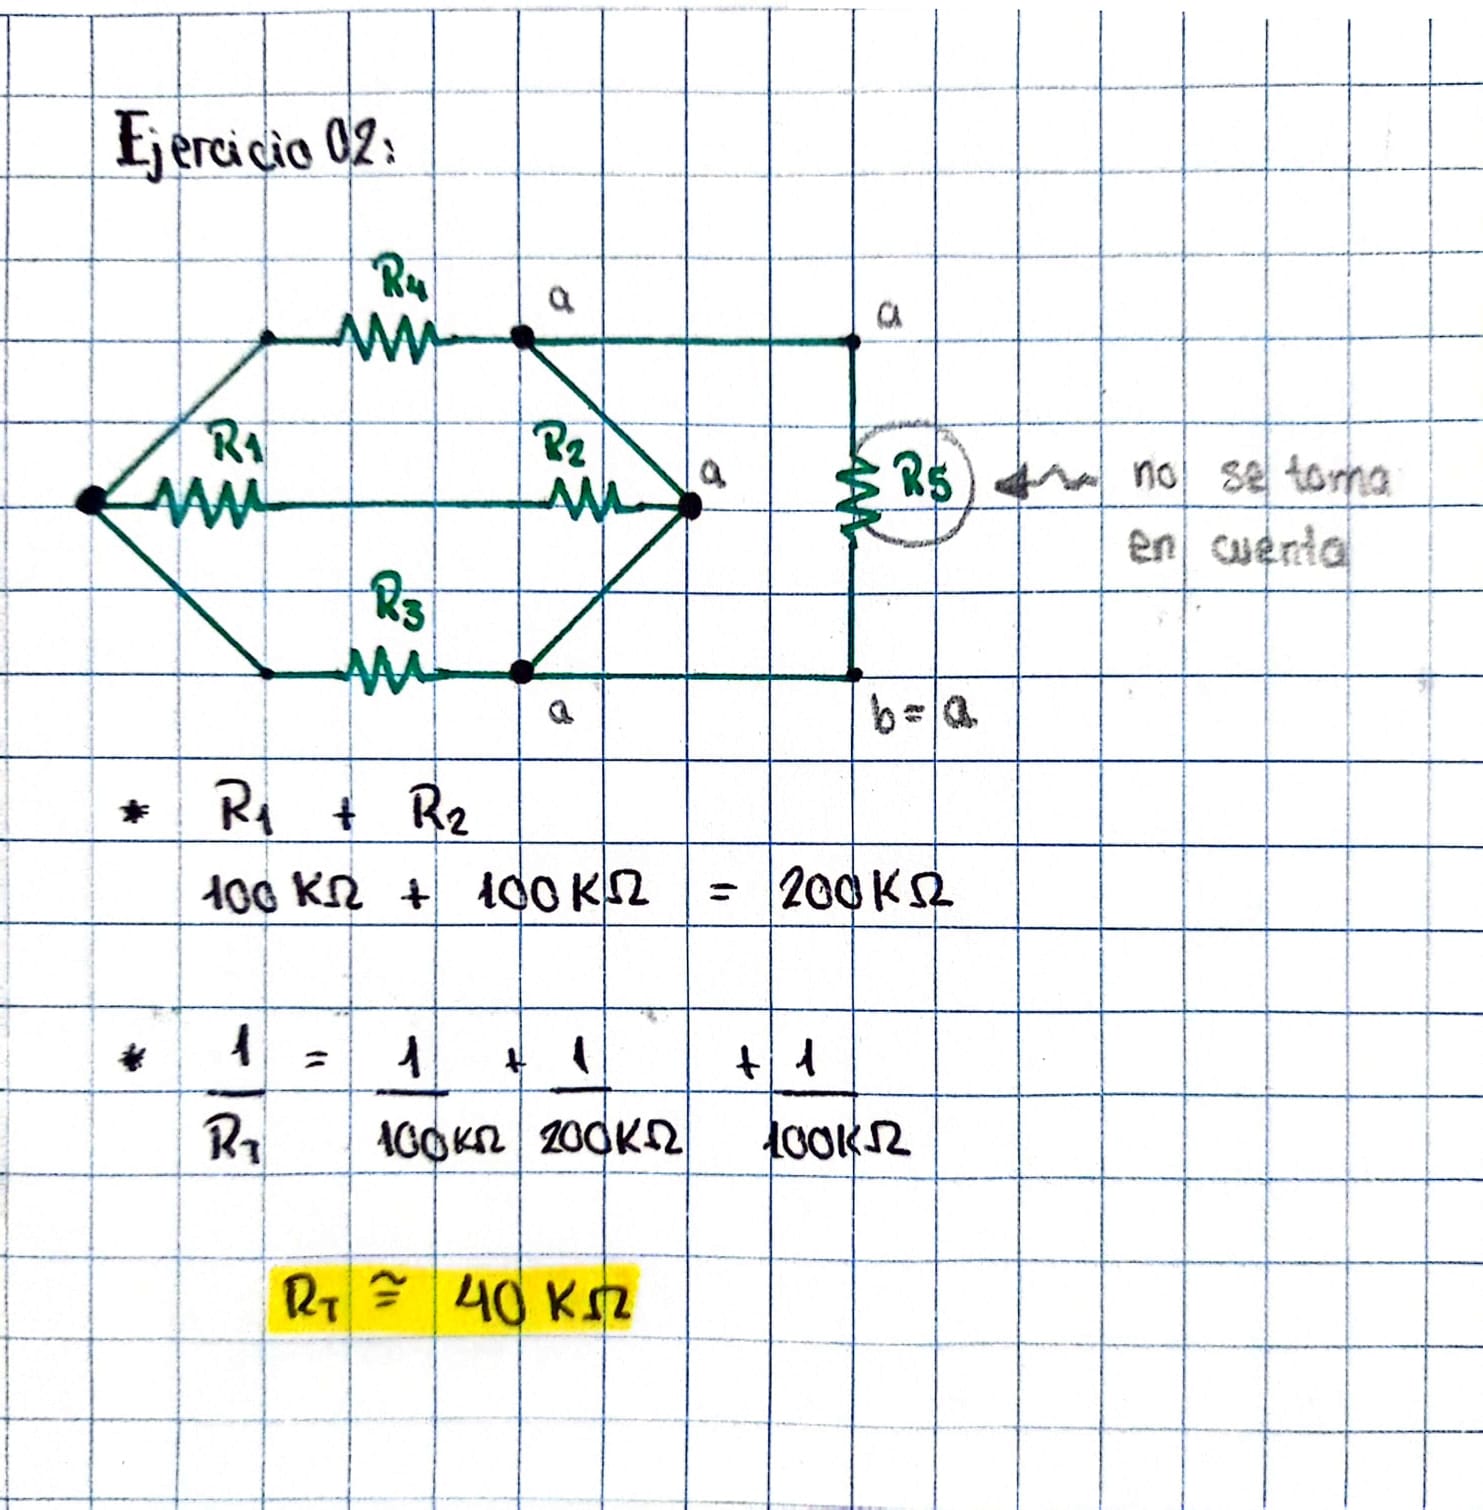 Ejercicio 02:
R4 a a
R1 R2 a R5 no se toma
en cuenta
R3
a b = a
* R1 + R2
100 KΩ + 100 KΩ = 200 KΩ
* 1/RT = 1/100KΩ + 1/200KΩ + 1/100KΩ
RT ≅ 40 KΩ